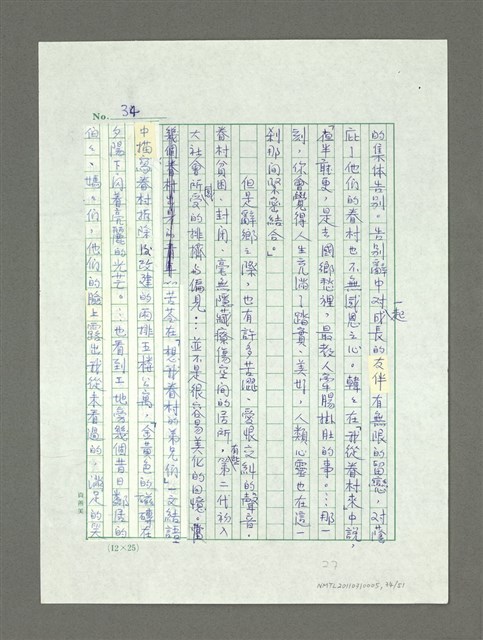 No. 34
的集体告別。告別辭中对一起成長的友伴有無限的留戀，对蔭
庇了他們的眷村也不無感恩之心。韓々在「我從眷村來」中說，
「夜半
，是去國鄉愁裡，最教人牽腸掛肚的事。…那一
刻，你會覺得人生充滿了踏實、美好，人類心靈也在這一
剎那间緊密結合。」
但是辭鄉之際，也有許多苦澀、愛恨交糾的聲音，
眷村貧困、封闭、毫無隱藏療傷空间的居所，有些第二代初入
大社會所受的排擠與偏見…並不是很容易美化的回憶。
苦苓在「想我眷村的弟兄們」一文結語
中描寫眷村拆除後改建的兩排五樓公寓，「金黃色的磁磚在
夕陽下闪着亮麗的光芒。…也看到工地旁幾個昔日鄰居的
伯々、媽々們，他們的臉上露出我從未看過的，滿足的笑
(12×25)
27
NMTL20110310005, 46/51